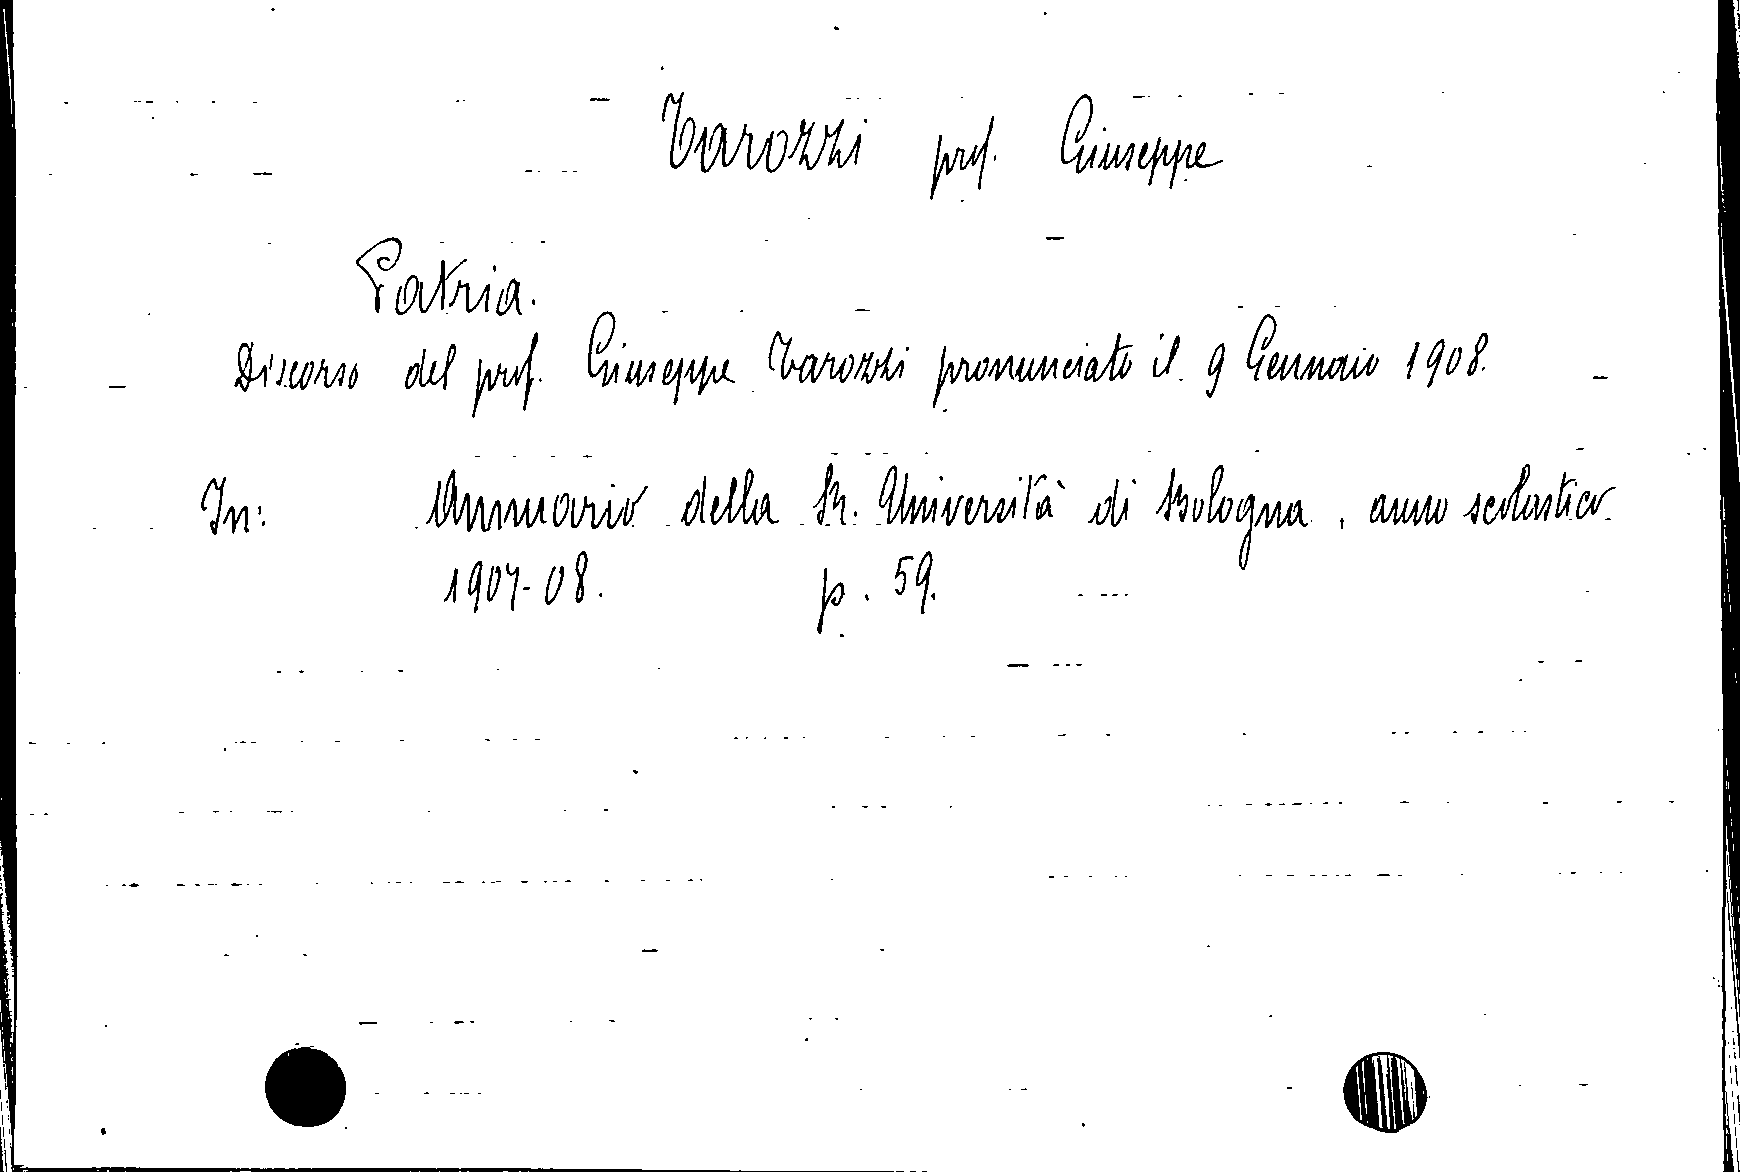 Tarozzi prof. Giuseppe
Patria.
Discorso del prof. Giuseppe Tarozzi pronunciato il 9 Gennaio 1908.
In: Annuario della R. Università di Bologna, anno scolastico
1907-08. p. 59.